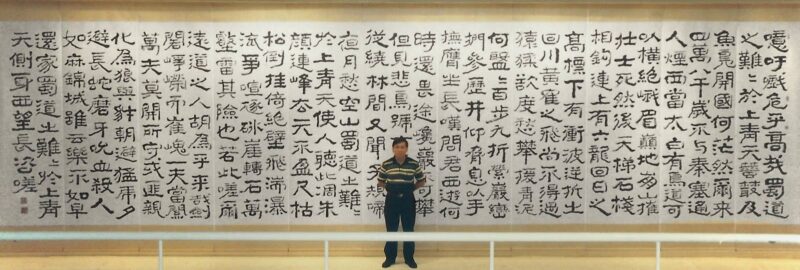 噫吁戲危乎高哉蜀道
之難〻於上青天蠶叢及
魚鳧開國何茫然爾來
四萬八千歲不与秦塞通
人煙西當太白有鳥道可
以橫絕峨眉巔地崩山摧
壯士死然後天梯石棧
相鉤連上有六龍回日之
高標下有衝波逆折之
回川黃鶴之飛尚不得過
猿猱欲度愁攀援青泥
何盤〻百步九折縈巖巒
捫參歷井仰脅息以手
撫膺坐長嘆問君西遊何
時還畏途巉巖不可攀
但見悲鳥號
從繞林間又聞規啼
夜月愁空山蜀道之難〻
於上青天使人聽此凋朱
顏連峰去天不盈尺枯
松倒挂倚絕壁飛湍瀑
流爭喧豗砯崖轉石萬
壑雷其險也若此嗟爾
遠道之人胡為乎來哉劍
閣崢嶸而崔嵬一夫當關
萬夫莫開所守或匪親
化為狼與豺朝避猛虎夕
避長蛇磨牙吮血殺人
如麻錦城雖云樂不如早
還家蜀道之難〻於上青
天側身西望長咨嗟